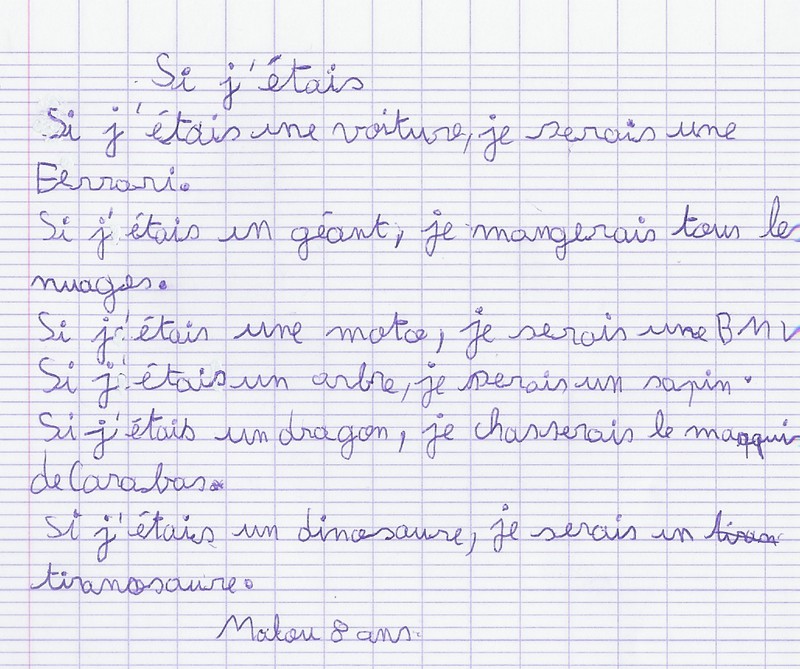 Si j'étais
Si j'étais une voiture, je serais une
Ferrari.
Si j'étais un géant, je mangerais tous le
nuages.
Si j'étais une moto, je serais une BMV
Si j'étais un arbre, je serais un sapin.
Si j'étais un dragon, je chasserais le maqqui
de Carabas.
Si j'étais un dinosaure, je serais un
tiranosaure.
8 ans.